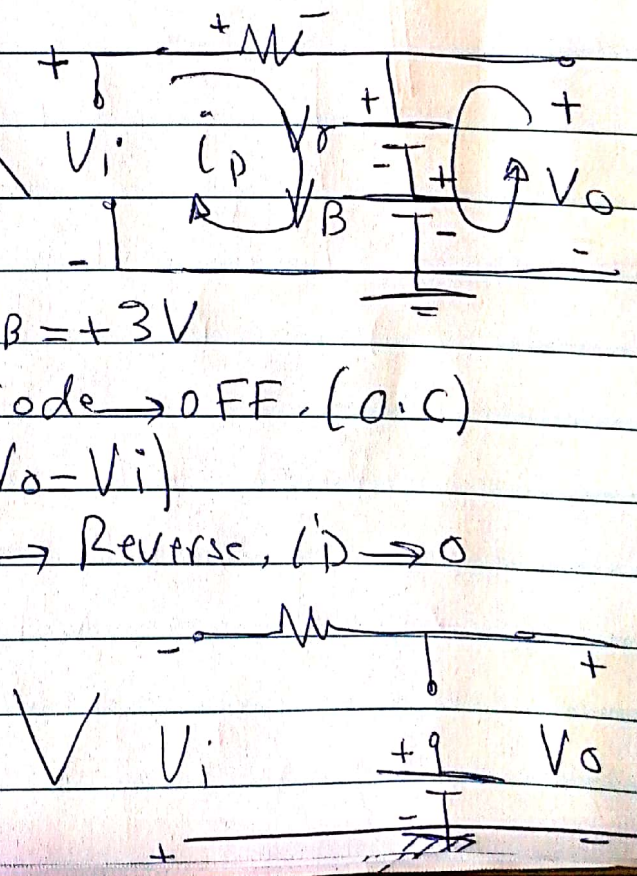 + -
+ + +
Vi iD Vγ - + Vo
VB -
- -
B = +3V
ode → OFF. (O.C)
Vo = Vi)
→ Reverse, iD → 0
- +
V Vi + Vo
-
+ -